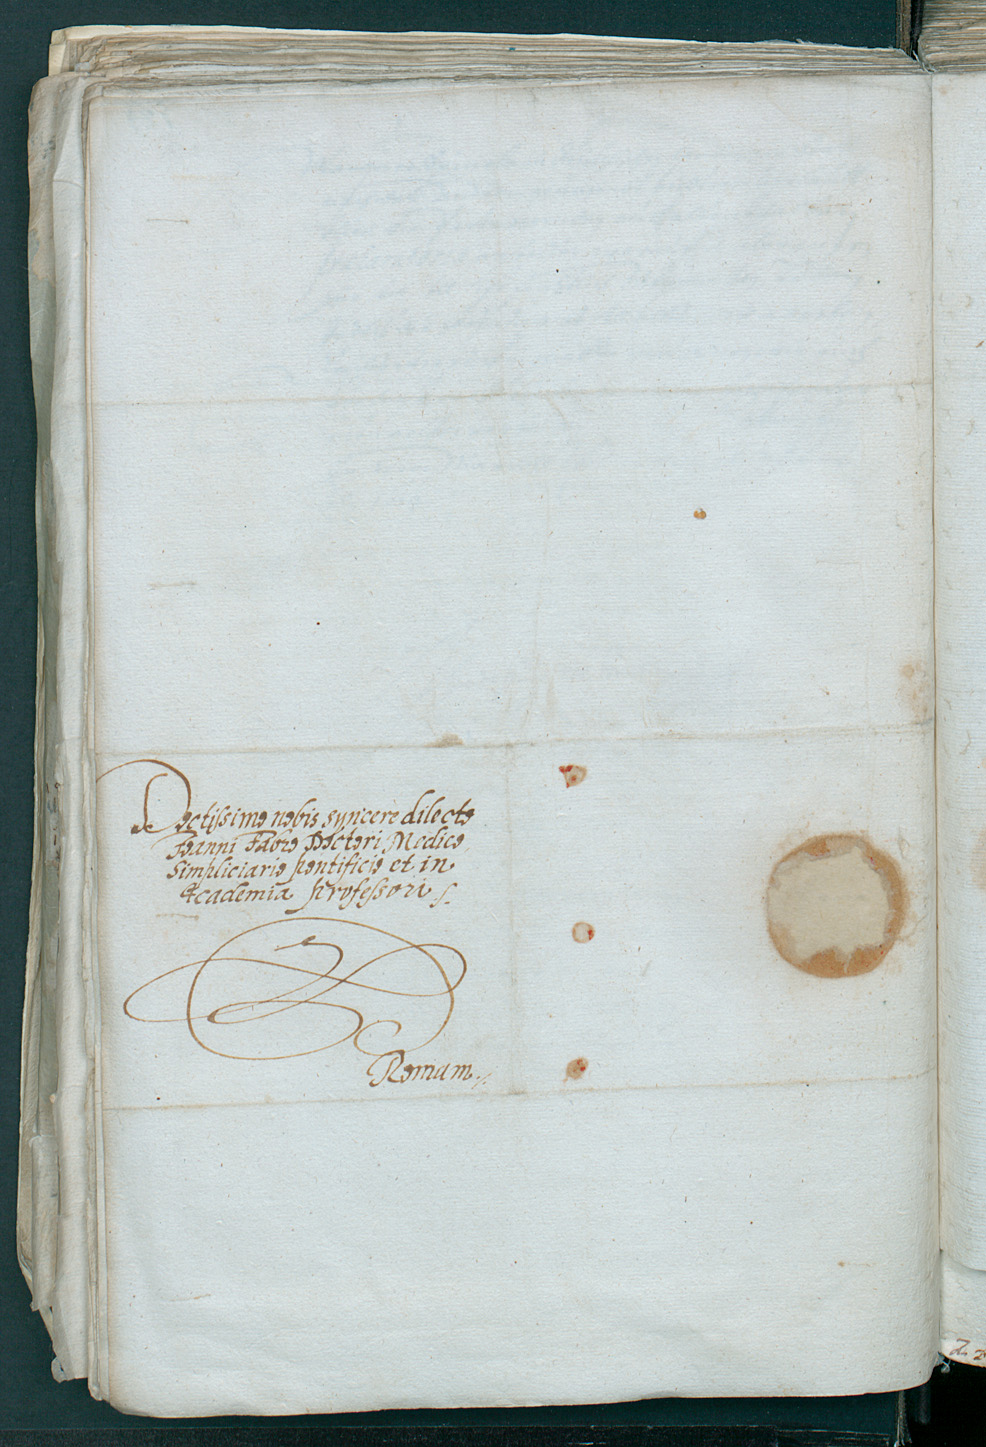 Doctissimo nobis syncere dilecto
Joanni Fabro Doctori Medico
Simpliciario pontificio et in
Academia professori
Romam